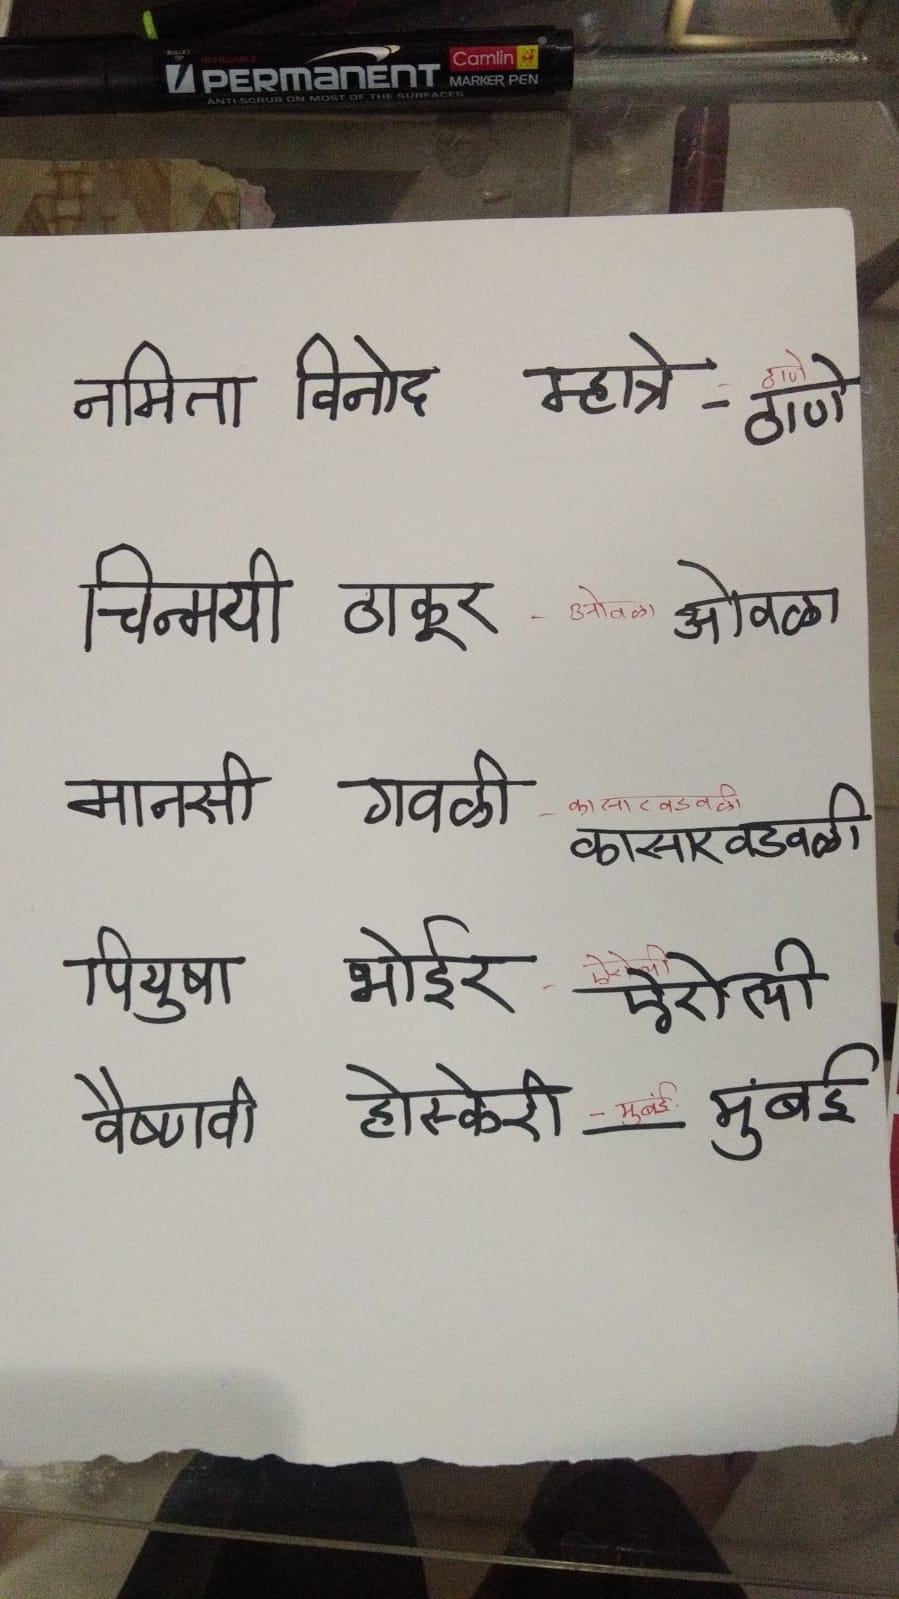 BULLET TIP
REFILLABLE
PERMANENT
Camlin
MARKER PEN
ANTI-SCRUB ON MOST OF THE SURFACES
नमिता विनोद म्हात्रे - ठाणे ठाणे
चिन्मयी ठाकूर - ओवळा ओवळा
मानसी गवळी - कासारवडवली
कासारवडवली
पियुषा भोईर - ऐरोली ऐरोली
वैष्णवी होस्केरी - मुंबई मुंबई